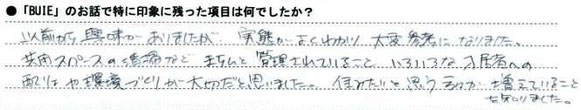 ●「BUIE」のお話で特に印象に残った項目は何でしたか？
以前から興味がありましたが、実態がよくわかり大変参考になりました。
共用スペースの清掃など、きちんと管理されていること、いろいろな入居者への
配りょや環境づくりが大切だと思いました。住みたいと思う方が増えていること
を知りました。